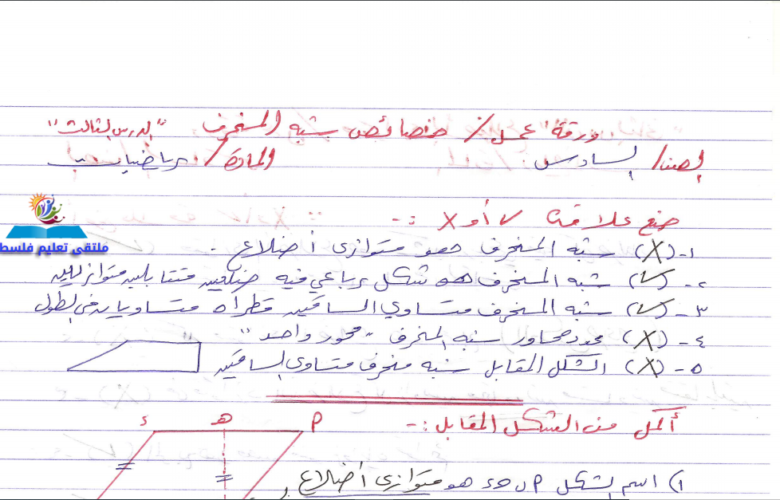 ورقة عمل / خصائص شبه المنحرف "الدرس الثالث"
الصف / السادس. المادة / رياضيات
ضع علامة √ أو X :-
١- (X) شبه المنحرف هو متوازي أضلاع.
٢- (√) شبه المنحرف هو شكل رباعي فيه ضلعين متقابلين متوازيين
٣- (√) شبه المنحرف متساوي الساقين قطراه متساويان في الطول
٤- (X) عدد محاور شبه المنحرف "محور واحد"
٥- (X) الشكل المقابل شبه منحرف متساوي الساقين
أكمل من الشكل المقابل :-
ء هـ م
١) اسم الشكل هو متوازي أضلاع
ملتقى تعليم فلسط